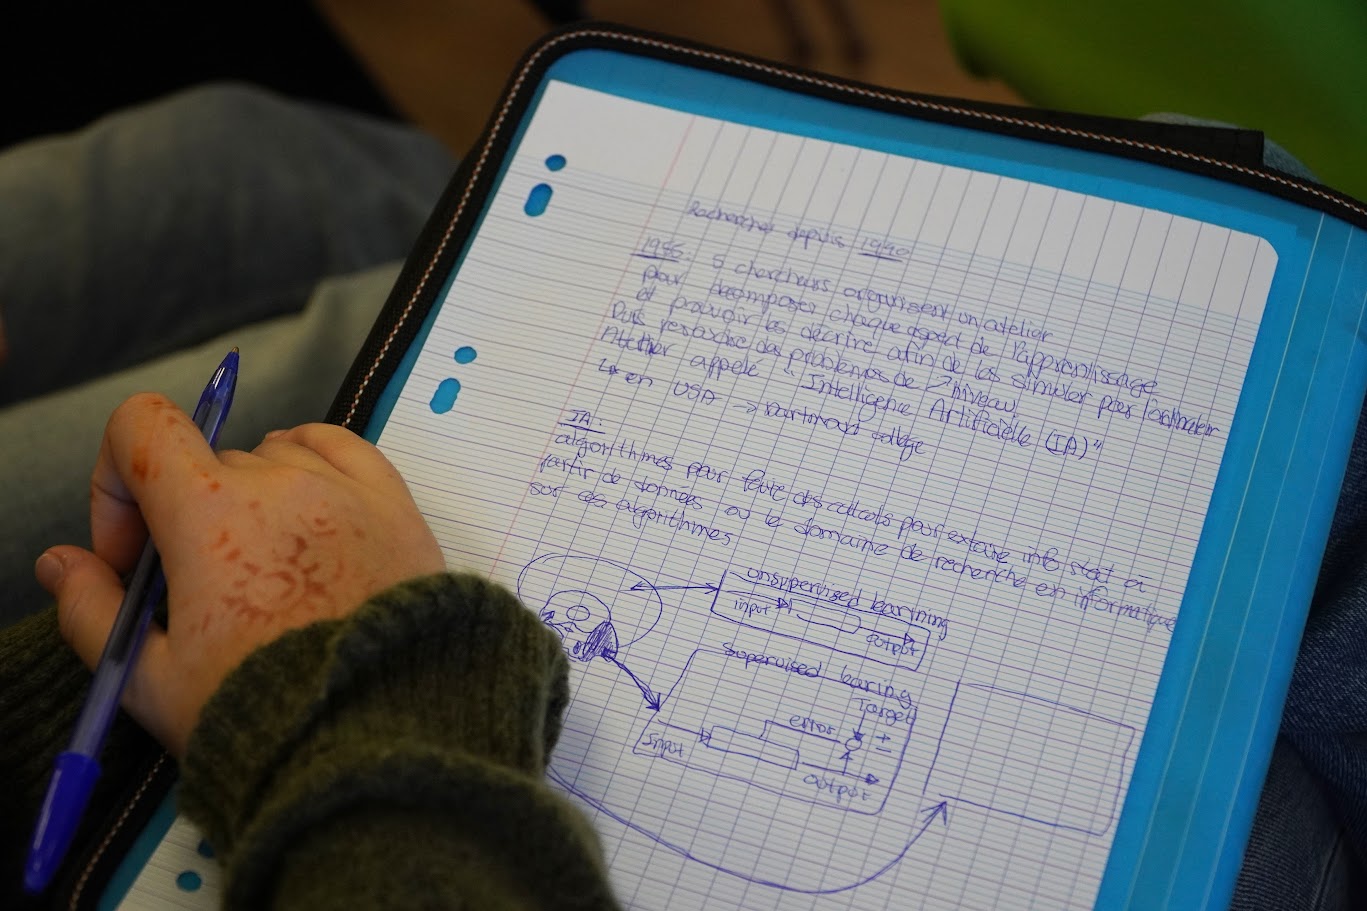 Recherches depuis 1940
1956: 5 chercheurs organisent un atelier
pour décomposer chaque aspect de l'apprentissage
et pouvoir les décrire afin de les simuler pour l'ordinateur
Puis résoudre des problèmes de niveau
Atelier appelé "Intelligence Artificielle (IA)"
↳ en USA → Dartmouth collège
IA:
algorithmes pour faire des calculs pour extraire info stat à
partir de données ou le domaine de recherche en informatique
sur ces algorithmes
unsupervised learning
input
output
Supervised learing
Target
error
+
−
Input
output